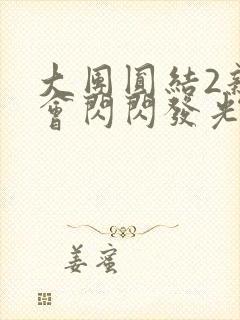 大團圓結2
會閃閃發光
姜蜜